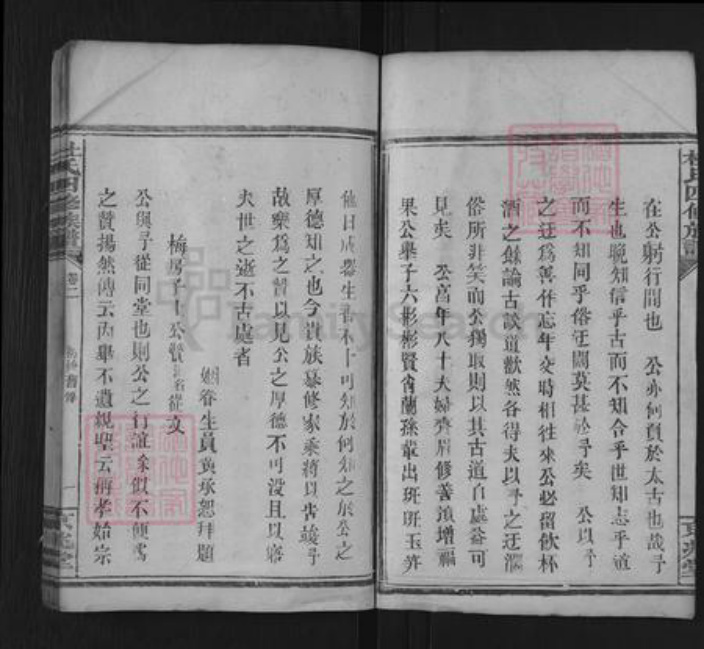 在公躬行間也　公亦何負於太古也哉予
生也晚知信乎古而不知合乎世知志乎道
而不知同乎俗迂闊莫甚於予矣　公以予
之迂爲善作忘年交時相往來公必留飲杯
酒之餘論古談道歡然各得夫以予之迂
俗所非笑而公獨取則以其古道自處益可
見矣　公高年八十夫婦齊眉修善須增福
果公舉子六彬彬賢肖蘭孫輩出班班玉笋
他日成器生香不卜可知於何知之於公之
厚德知之也今貴族纂修家乘將以告竣予
故樂爲之贊以見公之厚德不可沒且以寤
夫世之逝不古處者
姻眷生員黃承恕拜題
梅房子十公贊 從文
公與予從同堂也則公之行誼余似不便爲
之贊揚然傳云內舉不遺親聖云稱孝始宗
杜氏四修族譜
卷二
京兆堂
杜氏四修族譜
京兆堂
FamilySearch